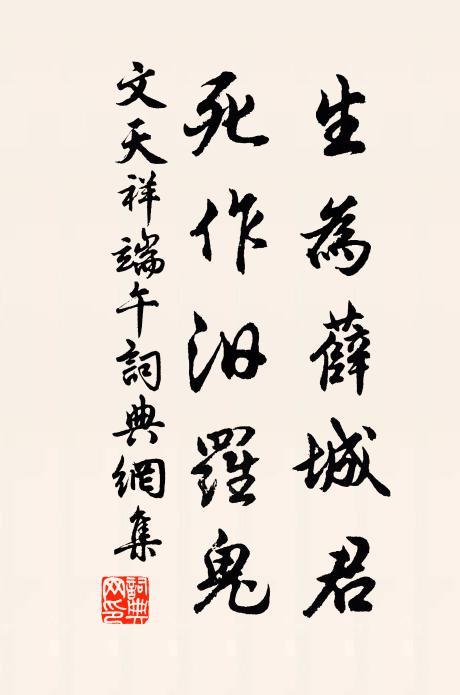 生為薛城君
死作汨羅鬼
文天祥端午詞典網集
詞典
网印